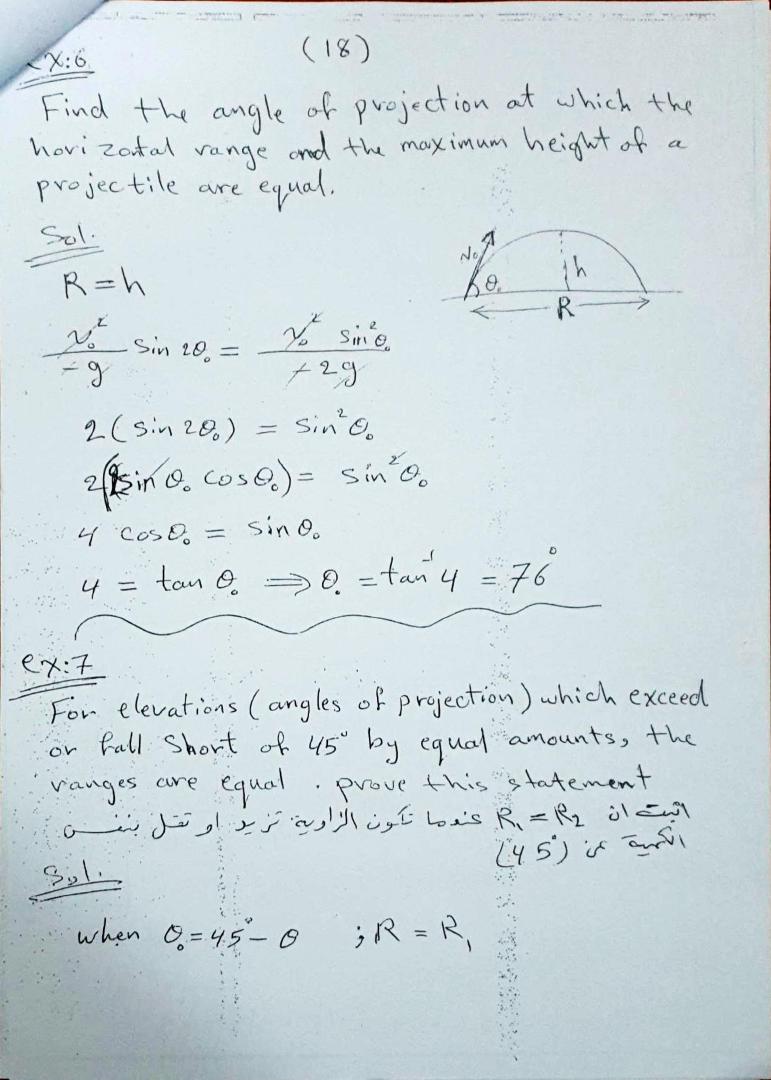 (18)
ex:6
Find the angle of projection at which the
horizotal range and the maximum height of a
projectile are equal.
Sol.
R = h
v₀ θ₀ h
R
v₀²/-g sin 2θ₀ = v₀² sin²θ₀/-2g
2(sin 2θ₀) = sin²θ₀
2(2sin θ₀ cos θ₀) = sin²θ₀
4 cos θ₀ = sin θ₀
4 = tan θ₀ ⟹ θ₀ = tan⁻¹ 4 = 76°
ex:7
For elevations (angles of projection) which exceed
or fall short of 45° by equal amounts, the
ranges are equal. prove this statement
اثبت ان R₁ = R₂ عندما تكون الزاوية تزيد او تقل بنفس
الكمية عن (45°)
Sol.
when θ₀ = 45° - θ ; R = R₁